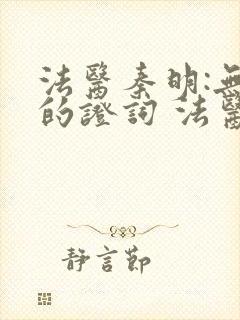 法醫秦明:無
的證詞 法醫
靜言節